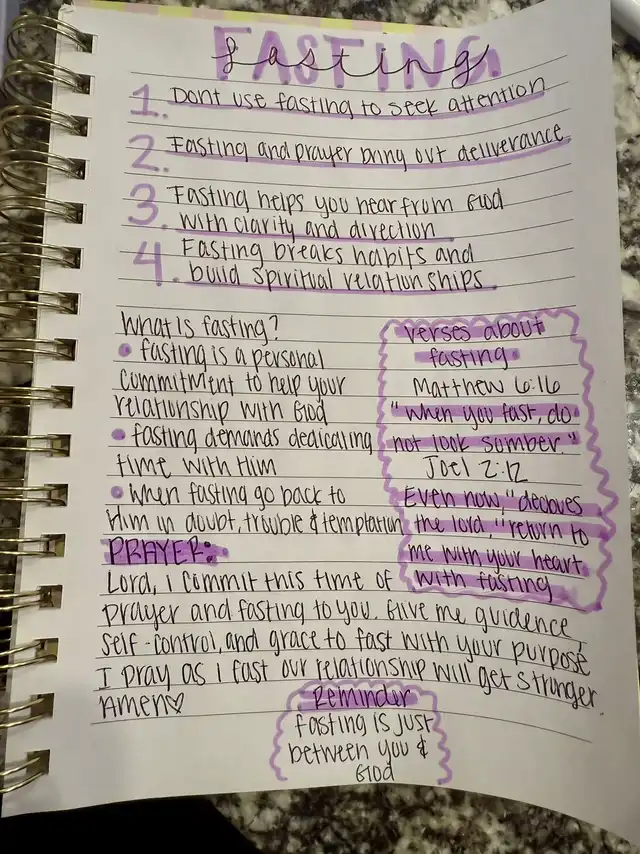 FASTING
fasting
1. Dont use fasting to seek attention
2. Fasting and prayer bring out deliverance
3. Fasting helps you hear from God
with clarity and direction
4. Fasting breaks habits and
build spiritual relationships
What is fasting?
• fasting is a personal
commitment to help your
relationship with God
• fasting demands dedicating
time with Him
• when fasting go back to
Him in doubt, trouble & temptation
verses about
fasting
Matthew 6:16
"when you fast, do
not look somber."
Joel 2:12
Even now," declares
the lord, "return to
me with your heart
with fasting
PRAYER:
Lord, I commit this time of
prayer and fasting to you. Give me guidence,
self-control, and grace to fast with your purpose
I pray as I fast our relationship will get stronger.
Amen♡
Reminder
fasting is just
between you &
God